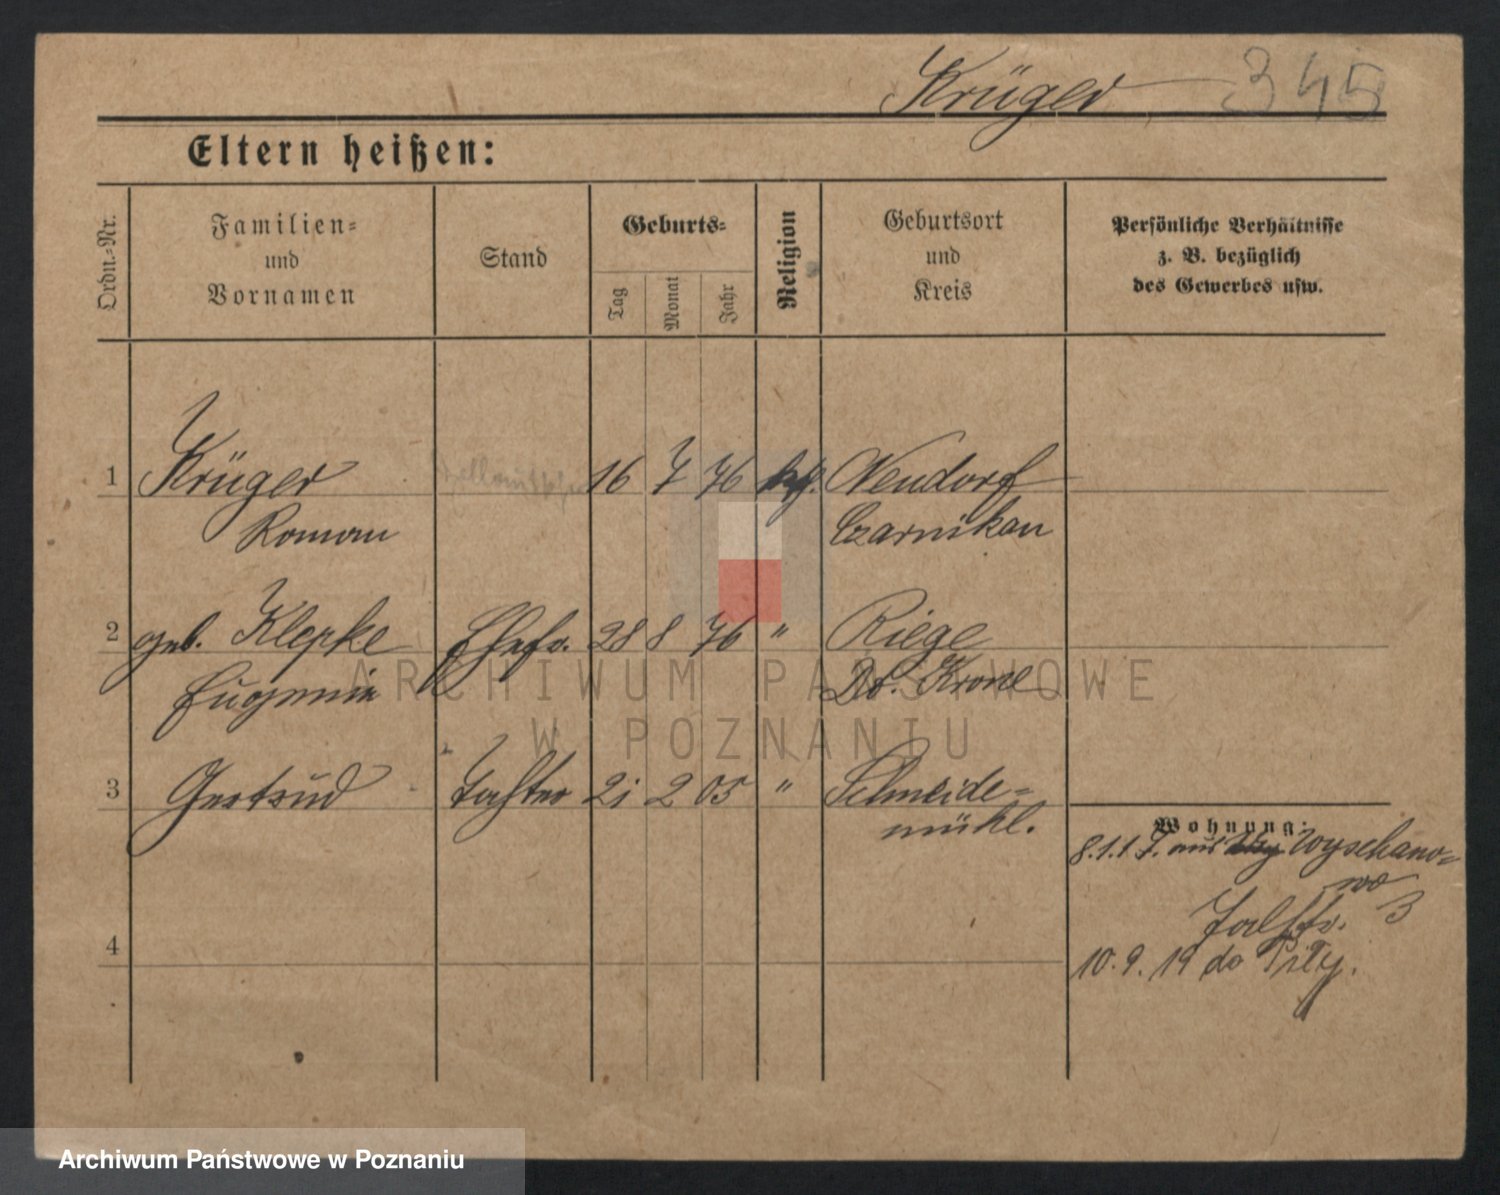 Krüger 345
Eltern heißen:
Ordn.-Nr.
Familien- und Vornamen
Stand
Geburts-
Tag
Monat
Jahr
Religion
Geburtsort und Kreis
Persönliche Verhältnisse z. B. bezüglich des Gewerbes usw.
1 Krüger 16 7 76 kath. Neudorf
Roman Czarnikau
2 geb. Klepke Ehefr. 28 8 76 " Riege
Eugenie Dt. Krone
3 Gertrud Tochter 21 2 05 " Schneide-
mühl.
Wohnung:
8.1.17. aus Wyschano-
wo
3
4
10.9.19 do Piły.
ARCHIWUM PAŃSTWOWE
W POZNANIU
Archiwum Państwowe w Poznaniu